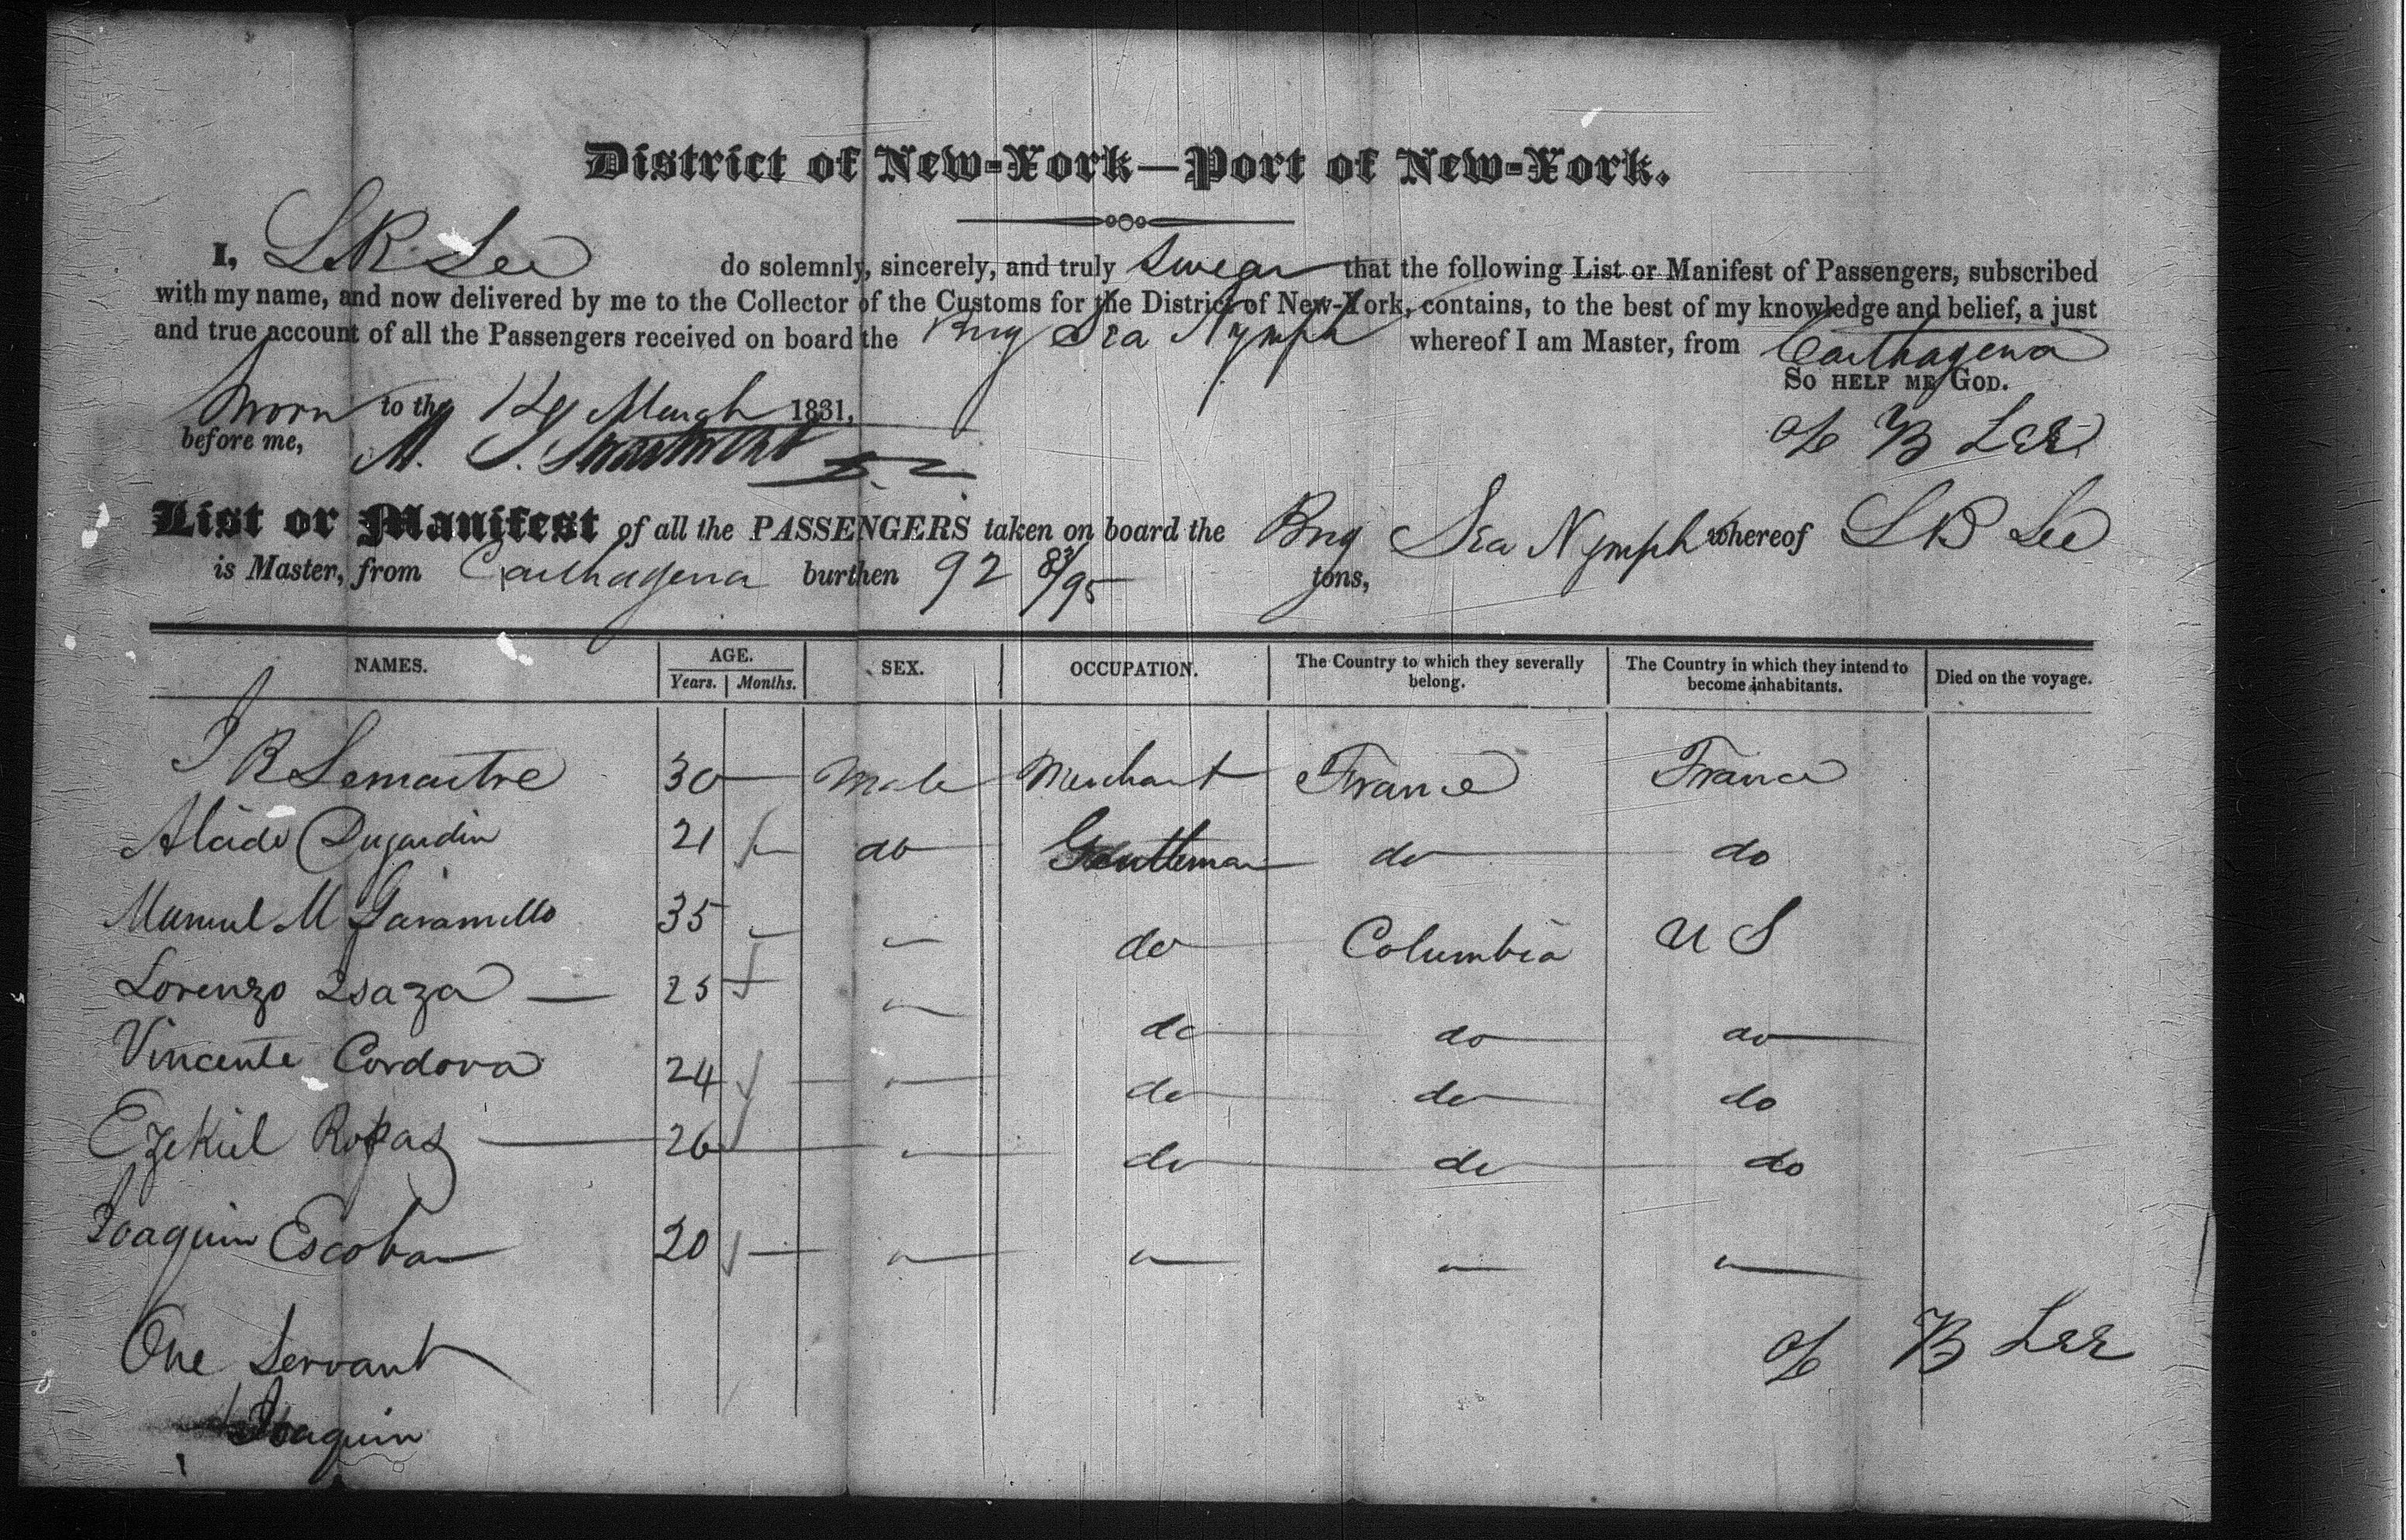 District of New-York—Port of New-York.
I, L B Lee do solemnly, sincerely, and truly Swear that the following List or Manifest of Passengers, subscribed
with my name, and now delivered by me to the Collector of the Customs for the District of New-York, contains, to the best of my knowledge and belief, a just
and true account of all the Passengers received on board the Brig Sea Nymph whereof I am Master, from Carthagena
So help me God.
Sworn to the 14 March 1831,
before me, M. Swartwout
L B Lee
List or Manifest of all the PASSENGERS taken on board the Brig Sea Nymph whereof L B Lee
is Master, from Carthagena burthen 92 /95 tons,
NAMES. AGE. Years. Months. SEX. OCCUPATION. The Country to which they severally belong. The Country in which they intend to become inhabitants. Died on the voyage.
Lemaitre 30 Male Merchant France France
Alcide Dujardin 21 do Gentleman do do
Manuel M Jaramillo 35 " do Columbia U S
Lorenzo Isaza 25 " do do do
Vincente Cordova 24 " do do do
Ezekiel Rojas 26 " do do do
Joaquin Escobar 20 " " " "
One Servant
L B Lee
Joaquin